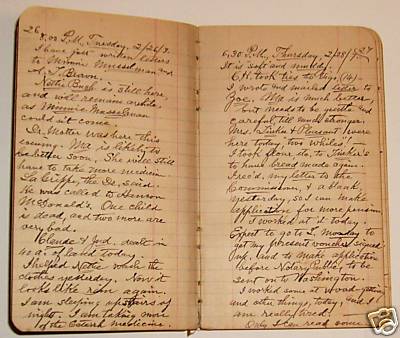 26
8.00 P.M., Tuesday, 2/26/7.
I have just written letters
to Minnie Musselman and
A. J. Brown.
Nettie Bush is still here
and will remain awhile.
as Minnie Musselman
could n't come.
Dr. Mester was here this
evening. Ma is likely to
be better soon. She will still
have to take more medicine
La Grippe, the Dr. said.
He was called to Henson
McDonald's. One child
is dead, and two more are
very bad.
Claude & Jord. dealt in
40 a. of land today.
I helped Nettie wash the
clothes yesterday. Now it
looks like rain again.
I am sleeping upstairs of
night. I am taking more
of the medicine.
27
6.30 P.M., Thursday, 2/28/7.
It is soft and muddy.
C.H. took ties to (14)-
I wrote and marked letter to
Zoe. Ma is much better,
but needs to be quiet and
careful, till much stronger.
Mrs. Tinker & Pleasant were
here today, two whiles!
I took flour, &c, to Tinker's
to have bread made again.
I rec'd, my letter to the
Commissioner, & a blank,
yesterday, so I can make
application for more pension
I worked at it today.
Expect to go to L. Monday to
get my present voucher signed
up, and to make application
before Notary Public, to be
sent on to Washington.
I worked some at wood-getting
and other things, today, and I
am really tired!
Only I can read some